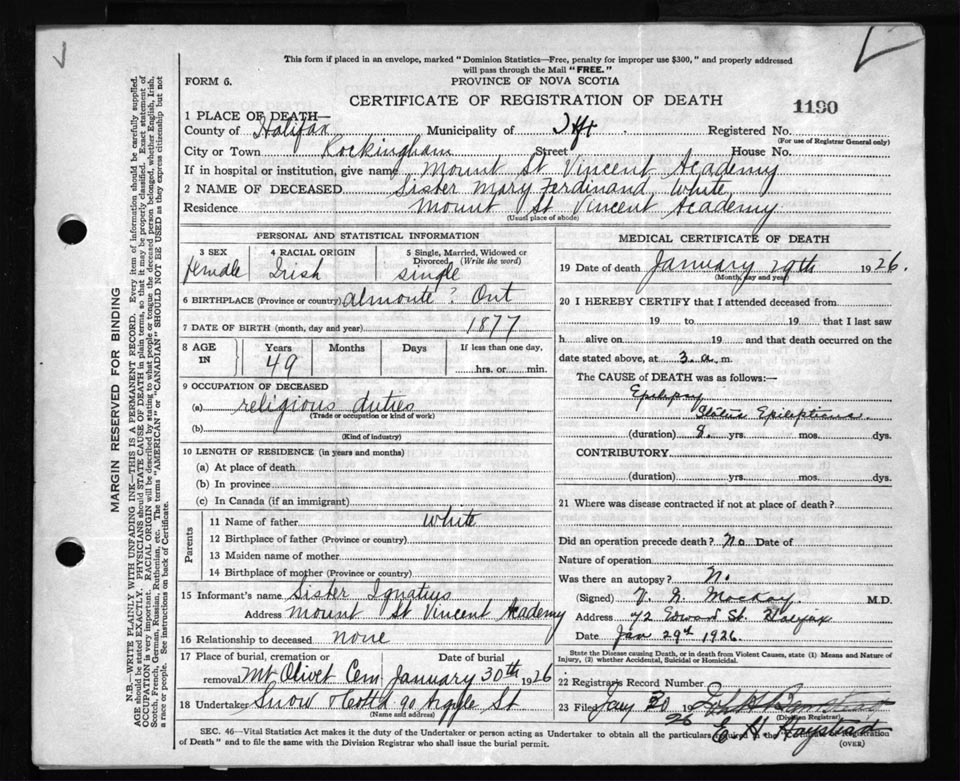 This form if placed in an envelope, marked "Dominion Statistics—Free, penalty for improper use $300," and properly addressed
will pass through the Mail "FREE."
FORM 6.
PROVINCE OF NOVA SCOTIA
CERTIFICATE OF REGISTRATION OF DEATH
1190
1 PLACE OF DEATH—
County of Halifax Municipality of Registered No.
(For use of Registrar General only)
City or Town Rockingham Street House No.
If in hospital or institution, give name Mount St Vincent Academy
2 NAME OF DECEASED Sister Mary Ferdinand White
Residence Mount St Vincent Academy
(Usual place of abode)
PERSONAL AND STATISTICAL INFORMATION
3 SEX female
4 RACIAL ORIGIN Irish
5 Single, Married, Widowed or Divorced (Write the word) single
6 BIRTHPLACE (Province or country) Almonte ? Ont
7 DATE OF BIRTH (month, day and year) 1877
8 AGE IN Years 49 Months Days If less than one day, hrs. or min.
9 OCCUPATION OF DECEASED
(a) religious duties
(Trade or occupation or kind of work)
(b)
(Kind of industry)
10 LENGTH OF RESIDENCE (in years and months)
(a) At place of death
(b) In province
(c) In Canada (if an immigrant)
Parents
11 Name of father White
12 Birthplace of father (Province or country)
13 Maiden name of mother
14 Birthplace of mother (Province or country)
15 Informant's name Sister Ignatius
Address Mount St Vincent Academy
16 Relationship to deceased none
17 Place of burial, cremation or removal Mt Olivet Cem
Date of burial January 30th 1926
18 Undertaker Snow & Co Ltd 90 Argyle St
(Name and address)
MEDICAL CERTIFICATE OF DEATH
19 Date of death January 29th 1926.
(Month, day and year)
20 I HEREBY CERTIFY that I attended deceased from
19 to 19 that I last saw
h alive on 19 and that death occurred on the
date stated above, at 3. a. m.
The CAUSE OF DEATH was as follows:—
Epilepsy
Status Epilepticus.
(duration) 8. yrs. mos. dys.
CONTRIBUTORY
(duration) yrs. mos. dys.
21 Where was disease contracted if not at place of death?
Did an operation precede death? No Date of
Nature of operation
Was there an autopsy? No.
(Signed) V. N. Mackay. M.D.
Address 72 Edward St. Halifax
Date Jan 29th 1926.
State the Disease causing Death, or in death from Violent Causes, state (1) Means and Nature of
Injury, (2) whether Accidental, Suicidal or Homicidal.
22 Registrar's Record Number
23 Filed Jany 30 1926
E H
(Division Registrar)
SEC. 46—Vital Statistics Act makes it the duty of the Undertaker or person acting as Undertaker to obtain all the particulars required in the "Certificate of Registration
of Death" and to file the same with the Division Registrar who shall issue the burial permit.
(OVER)
MARGIN RESERVED FOR BINDING
N.B.—WRITE PLAINLY WITH UNFADING INK—THIS IS A PERMANENT RECORD. Every item of information should be carefully supplied.
AGE should be stated EXACTLY. PHYSICIANS should STATE CAUSE OF DEATH in plain terms, so that it may be properly classified. Exact statement of
OCCUPATION is very important. RACIAL ORIGIN will be described by stating to what people or tongue the deceased person belonged, whether English, Irish,
Scotch, French, German, Russian, Ruthenian, etc. The terms "AMERICAN" or "CANADIAN" SHOULD NOT BE USED as they express citizenship but not
a race or people. See instructions on back of Certificate.